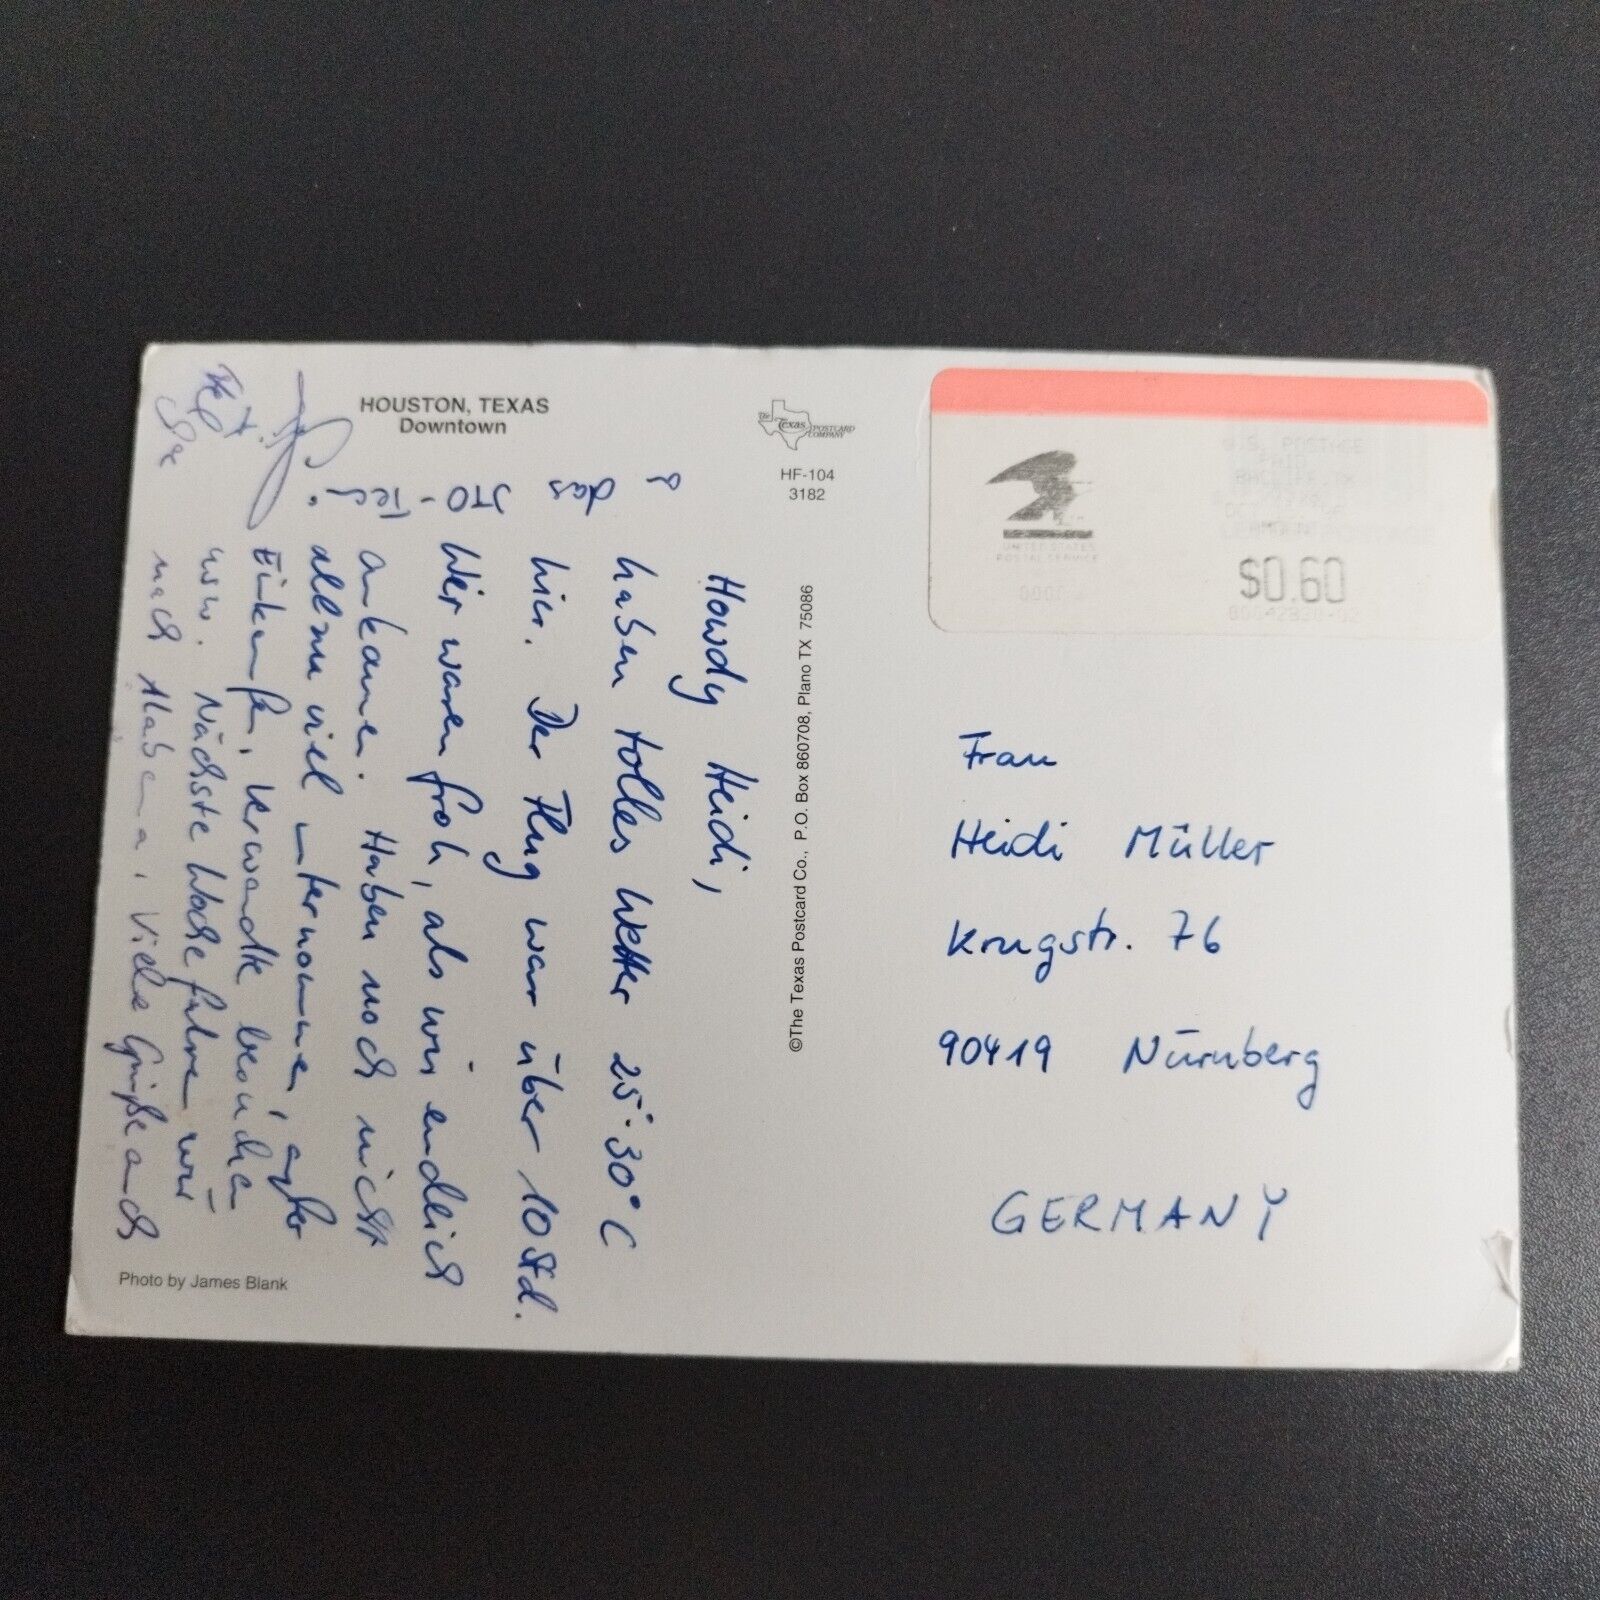 HOUSTON, TEXAS
Downtown
The Texas POSTCARD
COMPANY
HF-104
3182
©The Texas Postcard Co., P.O. Box 860708, Plano TX 75086
Photo by James Blank
Howdy Heidi,
haben tolles Wetter 25-30°C
hier. Der Flug war über 10 Std.
Wir waren froh, als wir endlich
ankamen. Haben noch nicht
allzu viel unternommen, außer
Einkaufen, Verwandte besuchen
usw. Nächste Woche fahren wir
nach Alabama. Viele Grüße auch
das
STO-
U.S. POSTAGE
PAID
UNITED STATES
POSTAL SERVICE
$0.60
Frau
Heidi Müller
Krugstr. 76
90419 Nürnberg
GERMANY